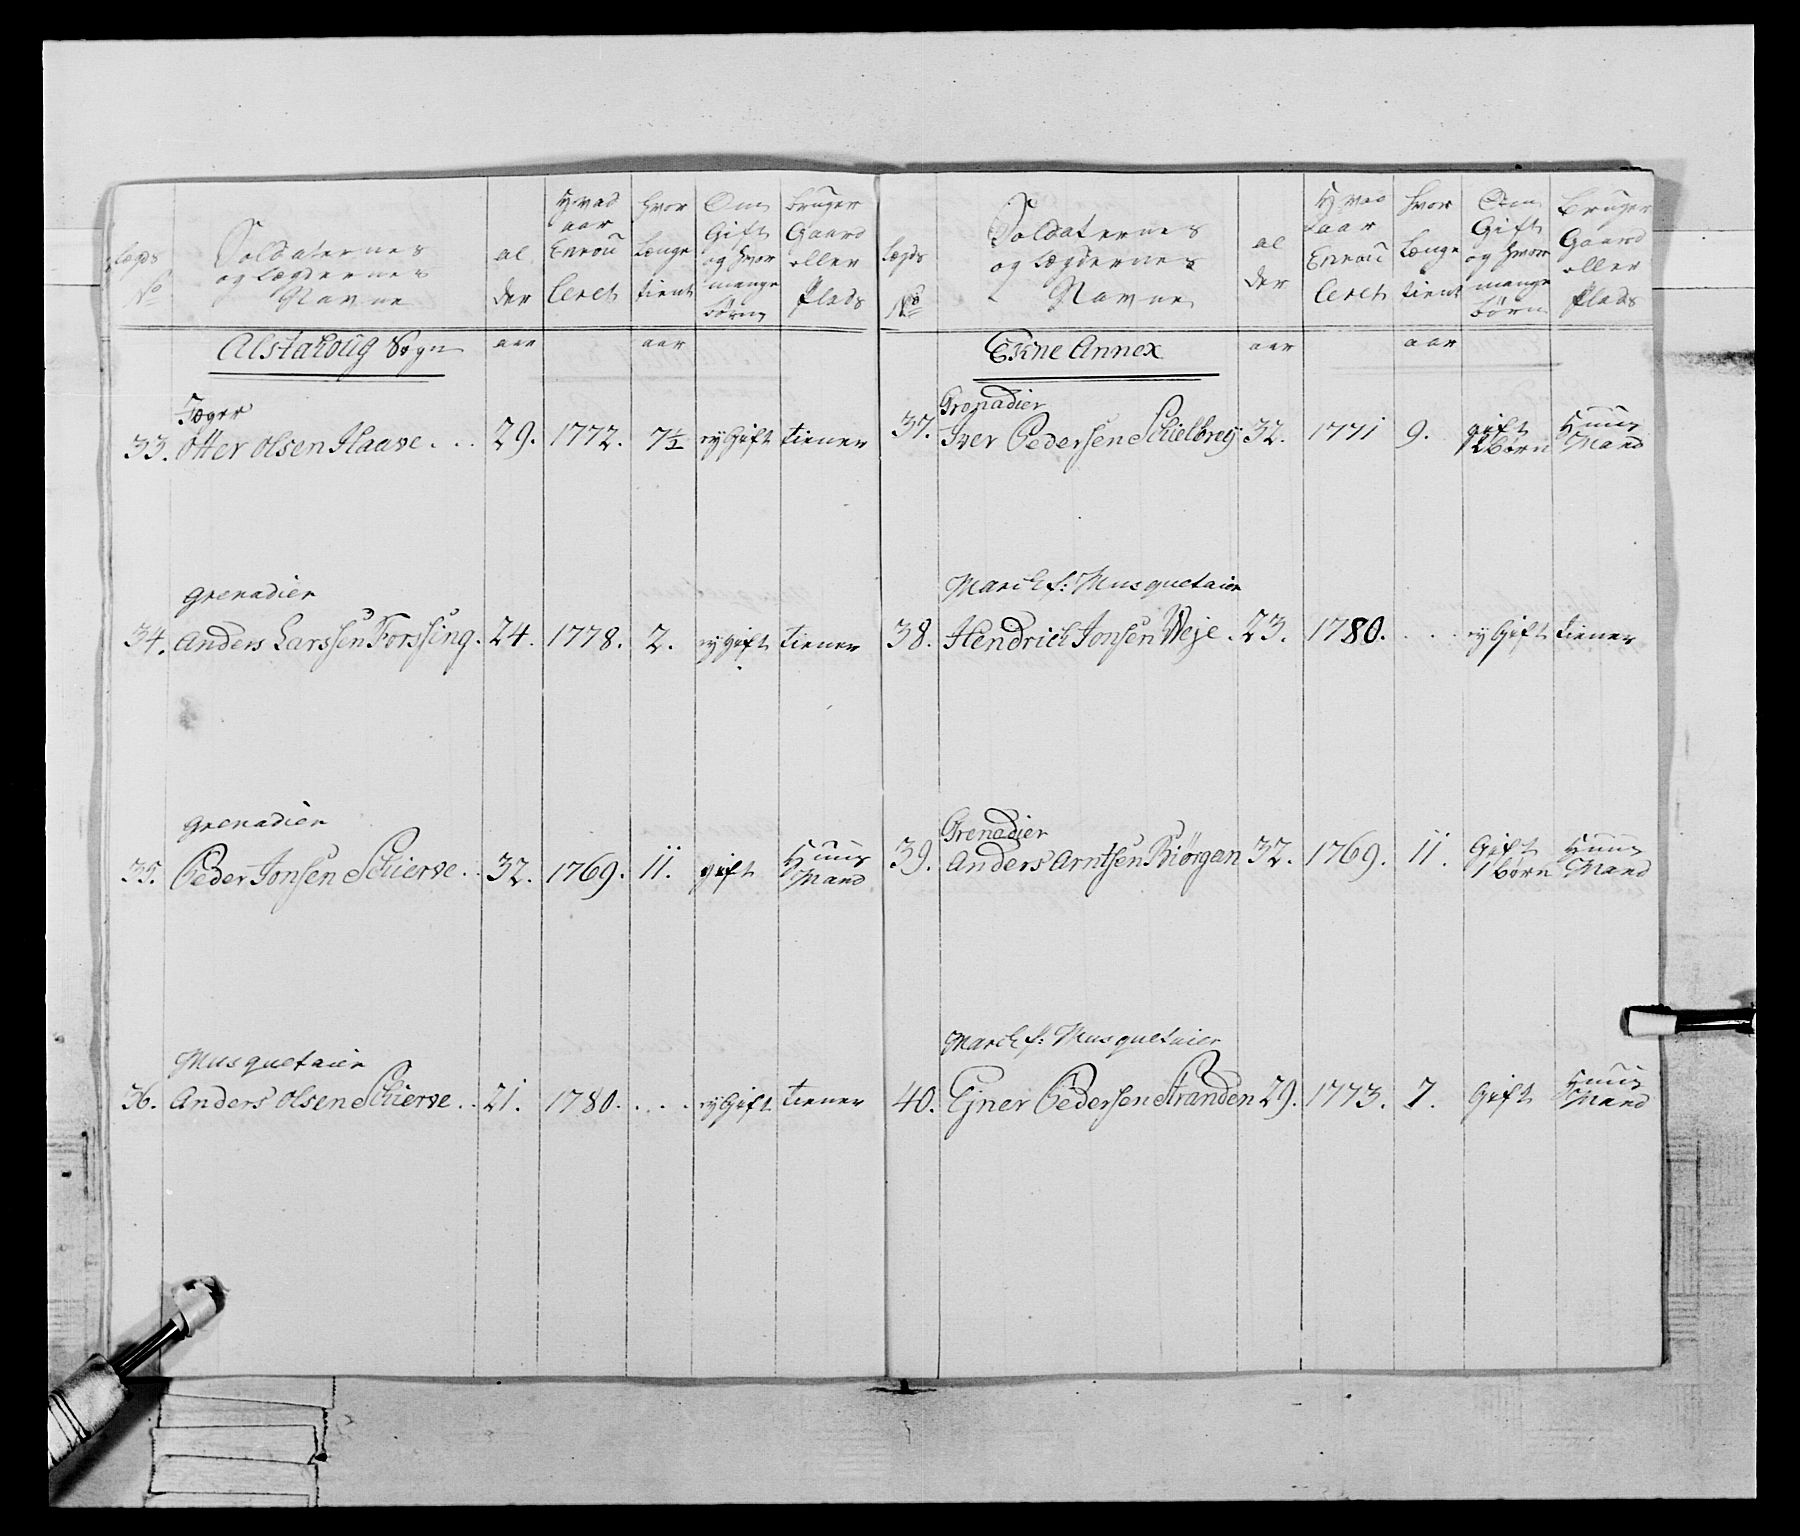 Lægds
No
Soldaternes
og Lægdernes
Navne
al
der
Hvad
aar
Enrou
leret
Hvor
Længe
tient
Om
Gift
og hvor
mange
børn
bruger
Gaard
eller
Plads
Alstahoug Sogn
aar
aar
Jæger
33. Otter Olsen Haave . . . 29. 1772. 7½ ey Gift tiener
Grenadier
34. Anders Larssen Forssing. 24. 1778. 2. ey Gift tiener
Grenadier
35. Peder Jonsen Schierve . . 32. 1769. 11. gift Huus
Mand
Musquetaier
36. Anders Olsen Schierve . . 21. 1780. . . . . ey Gift tiener
Lægds
No
Soldaternes
og Lægdernes
Navne
al
der
Hvad
aar
Enrou
leret
Hvor
Længe
tient
Om
Gift
og hvor
mange
børn
bruger
Gaard
eller
Plads
Ekne Annex
aar
aar
Grenadier
37. Iver Pedersen Schielbrey 32. 1771 9. gift Huus
børn Mand
March f: Musquetaier
38. Hendrich Jonsen Weje . 23. 1780. . . . ey Gift tiener
Grenadier
39. Anders Arntsen Biørgan 32. 1769. 11. Gift Huus
1 børn Mand
March f: Musquetaier
40. Ejner Pedersen Stranden 29. 1773. 7. Gift Huus
Mand